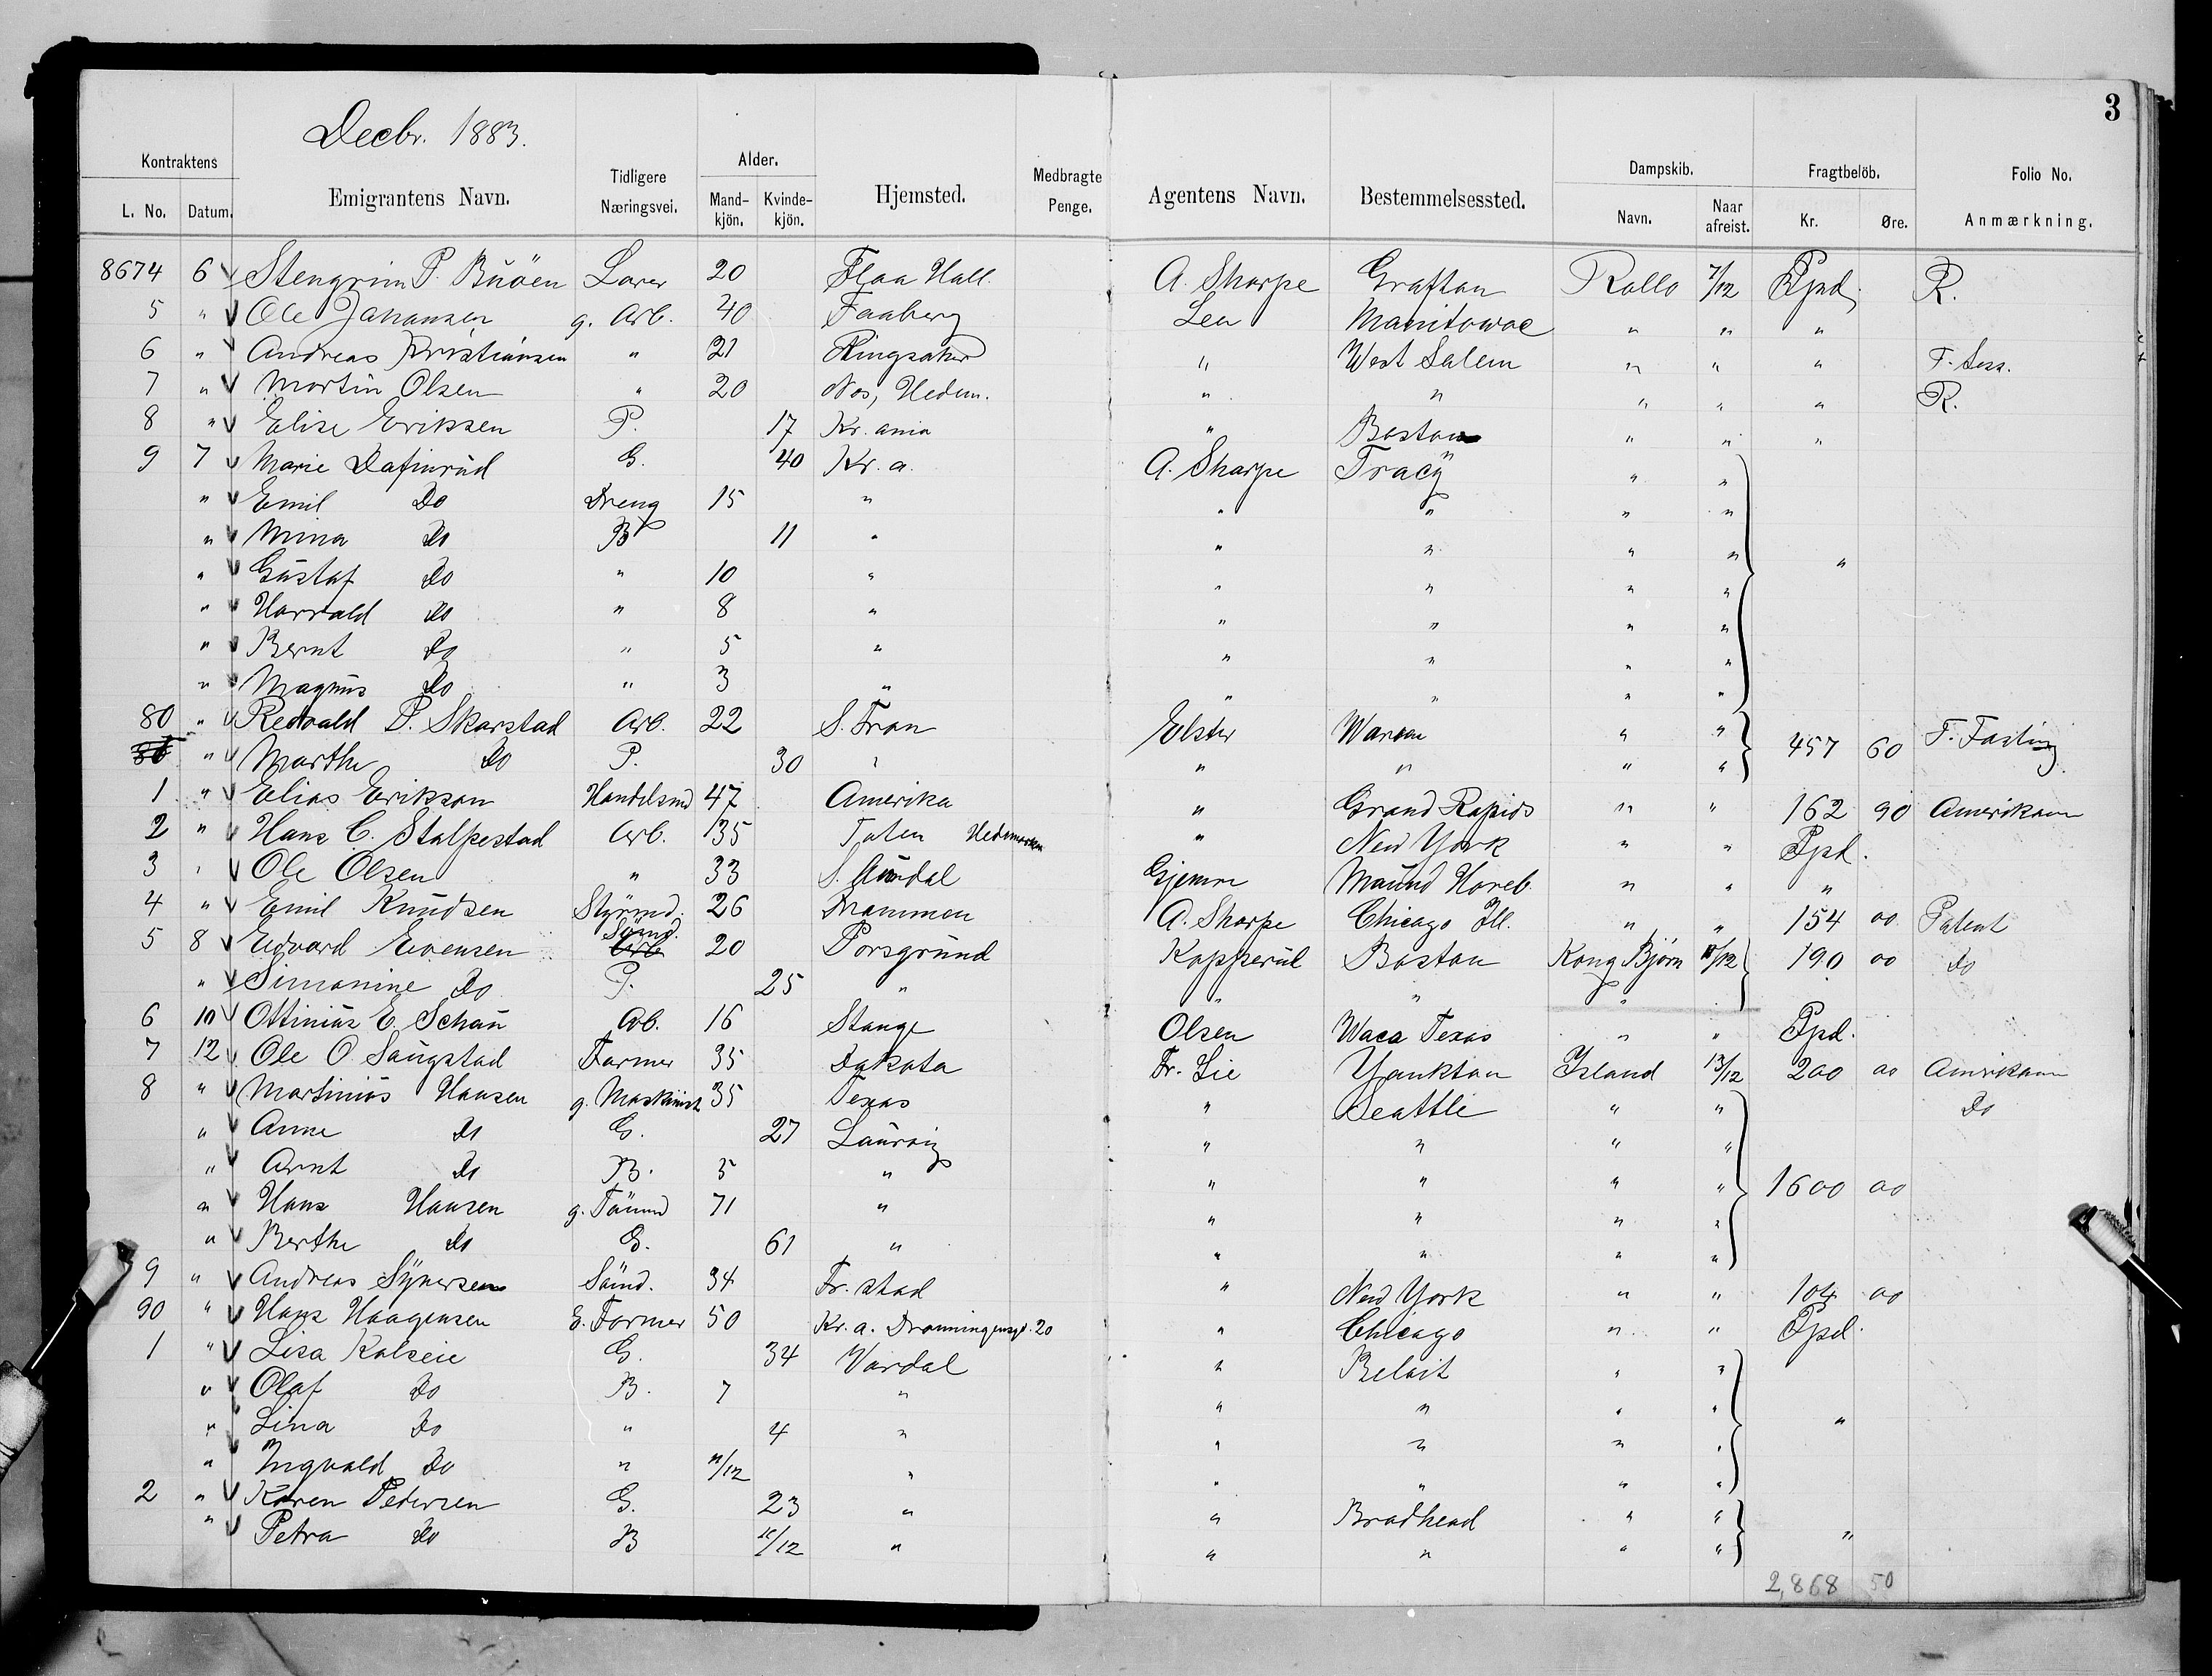 3
Decbr. 1883.
Kontraktens Alder. Dampskib. Fragtbelöb.
L. No. Datum. Emigrantens Navn. Tidligere Næringsvei. Mand-kjön. Kvinde-kjön. Hjemsted. Medbragte Penge. Agentens Navn. Bestemmelsessted. Navn. Naar afreist. Kr. Øre. Folio No. Anmærkning.
8674 6 Stengrim P. Buöen Lærer 20 Flaa Hall. A. Sharpe Grafton Rollo 7/12 Ppd. R.
5 " Ole Johansen g. Arb. 40 Faaberg Lea Manitowoc " " "
6 " Andreas Kristiansen " 21 Ringsaker " West Salem " " " F. Sess.
7 " Martin Olsen " 20 Næs, Hedem. " " " " " R.
8 " Elise Eriksen P. 17 Kr.ania " Boston " " "
9 7 Marie Dafinrud G. 40 Kr.a. A. Sharpe Tracy " "
" Emil Do Dreng 15 " " " " "
" Mina Do B 11 " " " " "
" Gustaf Do " 10 " " " " " "
" Harrald Do " 8 " " " " "
" Bernt Do " 5 " " " " "
" Magnus Do " 3 " " " " "
80 " Redvald P. Skarstad Arb. 22 S. Fron Elster " " 457 60 F. Fasting
" Marthe Do P. 30 " " " " "
1 " Elias Erikson Handelsmd 47 Amerika " Grand Rapids " " 162 90 Amerikaner
2 " Hans C. Stalpestad Arb. 35 Toten Hedemarken " New York " " Ppd.
3 " Ole Olsen " 33 S. Aurdal Gjemre Mound Horeb " " "
4 " Emil Knudsen Styrmd. 26 Drammen A. Sharpe Chicago Ill. " " 154 00 Patent
5 8 Edvard Evensen Sömd. Arb 20 Porsgrund Kopperud Boston Kong Björn 11/12 190 00 Do
" Simonine Do P. 25 " " " "
6 10 Ottinius E. Schau Arb. 16 Stange Olsen Waca Texas " " Ppd.
7 12 Ole O. Saugstad Farmer 35 Dakota Fr. Lie Yankton Island 13/12 200 00 Amerikaner
8 " Martinius Hansen g. Maskinist 35 Texas " Seattle " " Do
" Anne Do G. 27 Laurvig " " " "
" Arnt Do B. 5 " " " " " 1600 00
" Hans Hansen g. Tömmd 71 " " " " "
" Berthe Do G. 61 " " " " "
9 " Andreas Syversen Sömd. 34 Fr.stad " New York " " 104 00
90 " Hans Haagensen E. Farmer 50 Kr.a. Dronningensgd. 20 " Chicago " " Ppd.
1 " Lisa Kolseie G. 34 Vardal " Beloit " "
" Olaf Do B. 7 " " " " "
" Lina Do " 4 " " " " " "
" Ingvald Do " 11/12 " " " " "
2 " Karen Petersen G. 23 " " Brodhead " "
" Petra Do B 11/12 " " " " " "
2,868 50